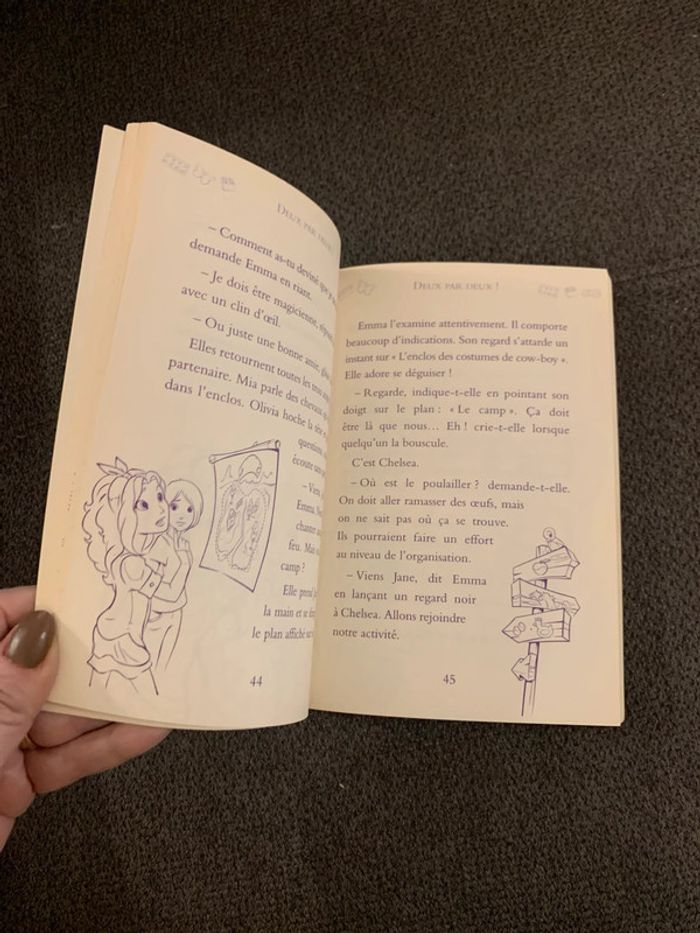 DEUX PAR DEUX
– Comment as-tu deviné que
demande Emma en riant.
– Je dois être magicienne,
avec un clin d'œil.
– Ou juste une bonne amie,
Elles retournent toutes les trois
partenaire. Mia parle des chevaux
dans l'enclos. Olivia hoche la tête
questions
écoute sans
– Viens
Emma.
chanter
feu. Mais
camp ?
Elle prend
la main et se
le plan affiché
44
DEUX PAR DEUX !
Emma l'examine attentivement. Il comporte
beaucoup d'indications. Son regard s'attarde un
instant sur « L'enclos des costumes de cow-boy ».
Elle adore se déguiser !
– Regarde, indique-t-elle en pointant son
doigt sur le plan : « Le camp ». Ça doit
être là que nous… Eh ! crie-t-elle lorsque
quelqu'un la bouscule.
C'est Chelsea.
– Où est le poulailler ? demande-t-elle.
On doit aller ramasser des œufs, mais
on ne sait pas où ça se trouve.
Ils pourraient faire un effort
au niveau de l'organisation.
– Viens Jane, dit Emma
en lançant un regard noir
à Chelsea. Allons rejoindre
notre activité.
45